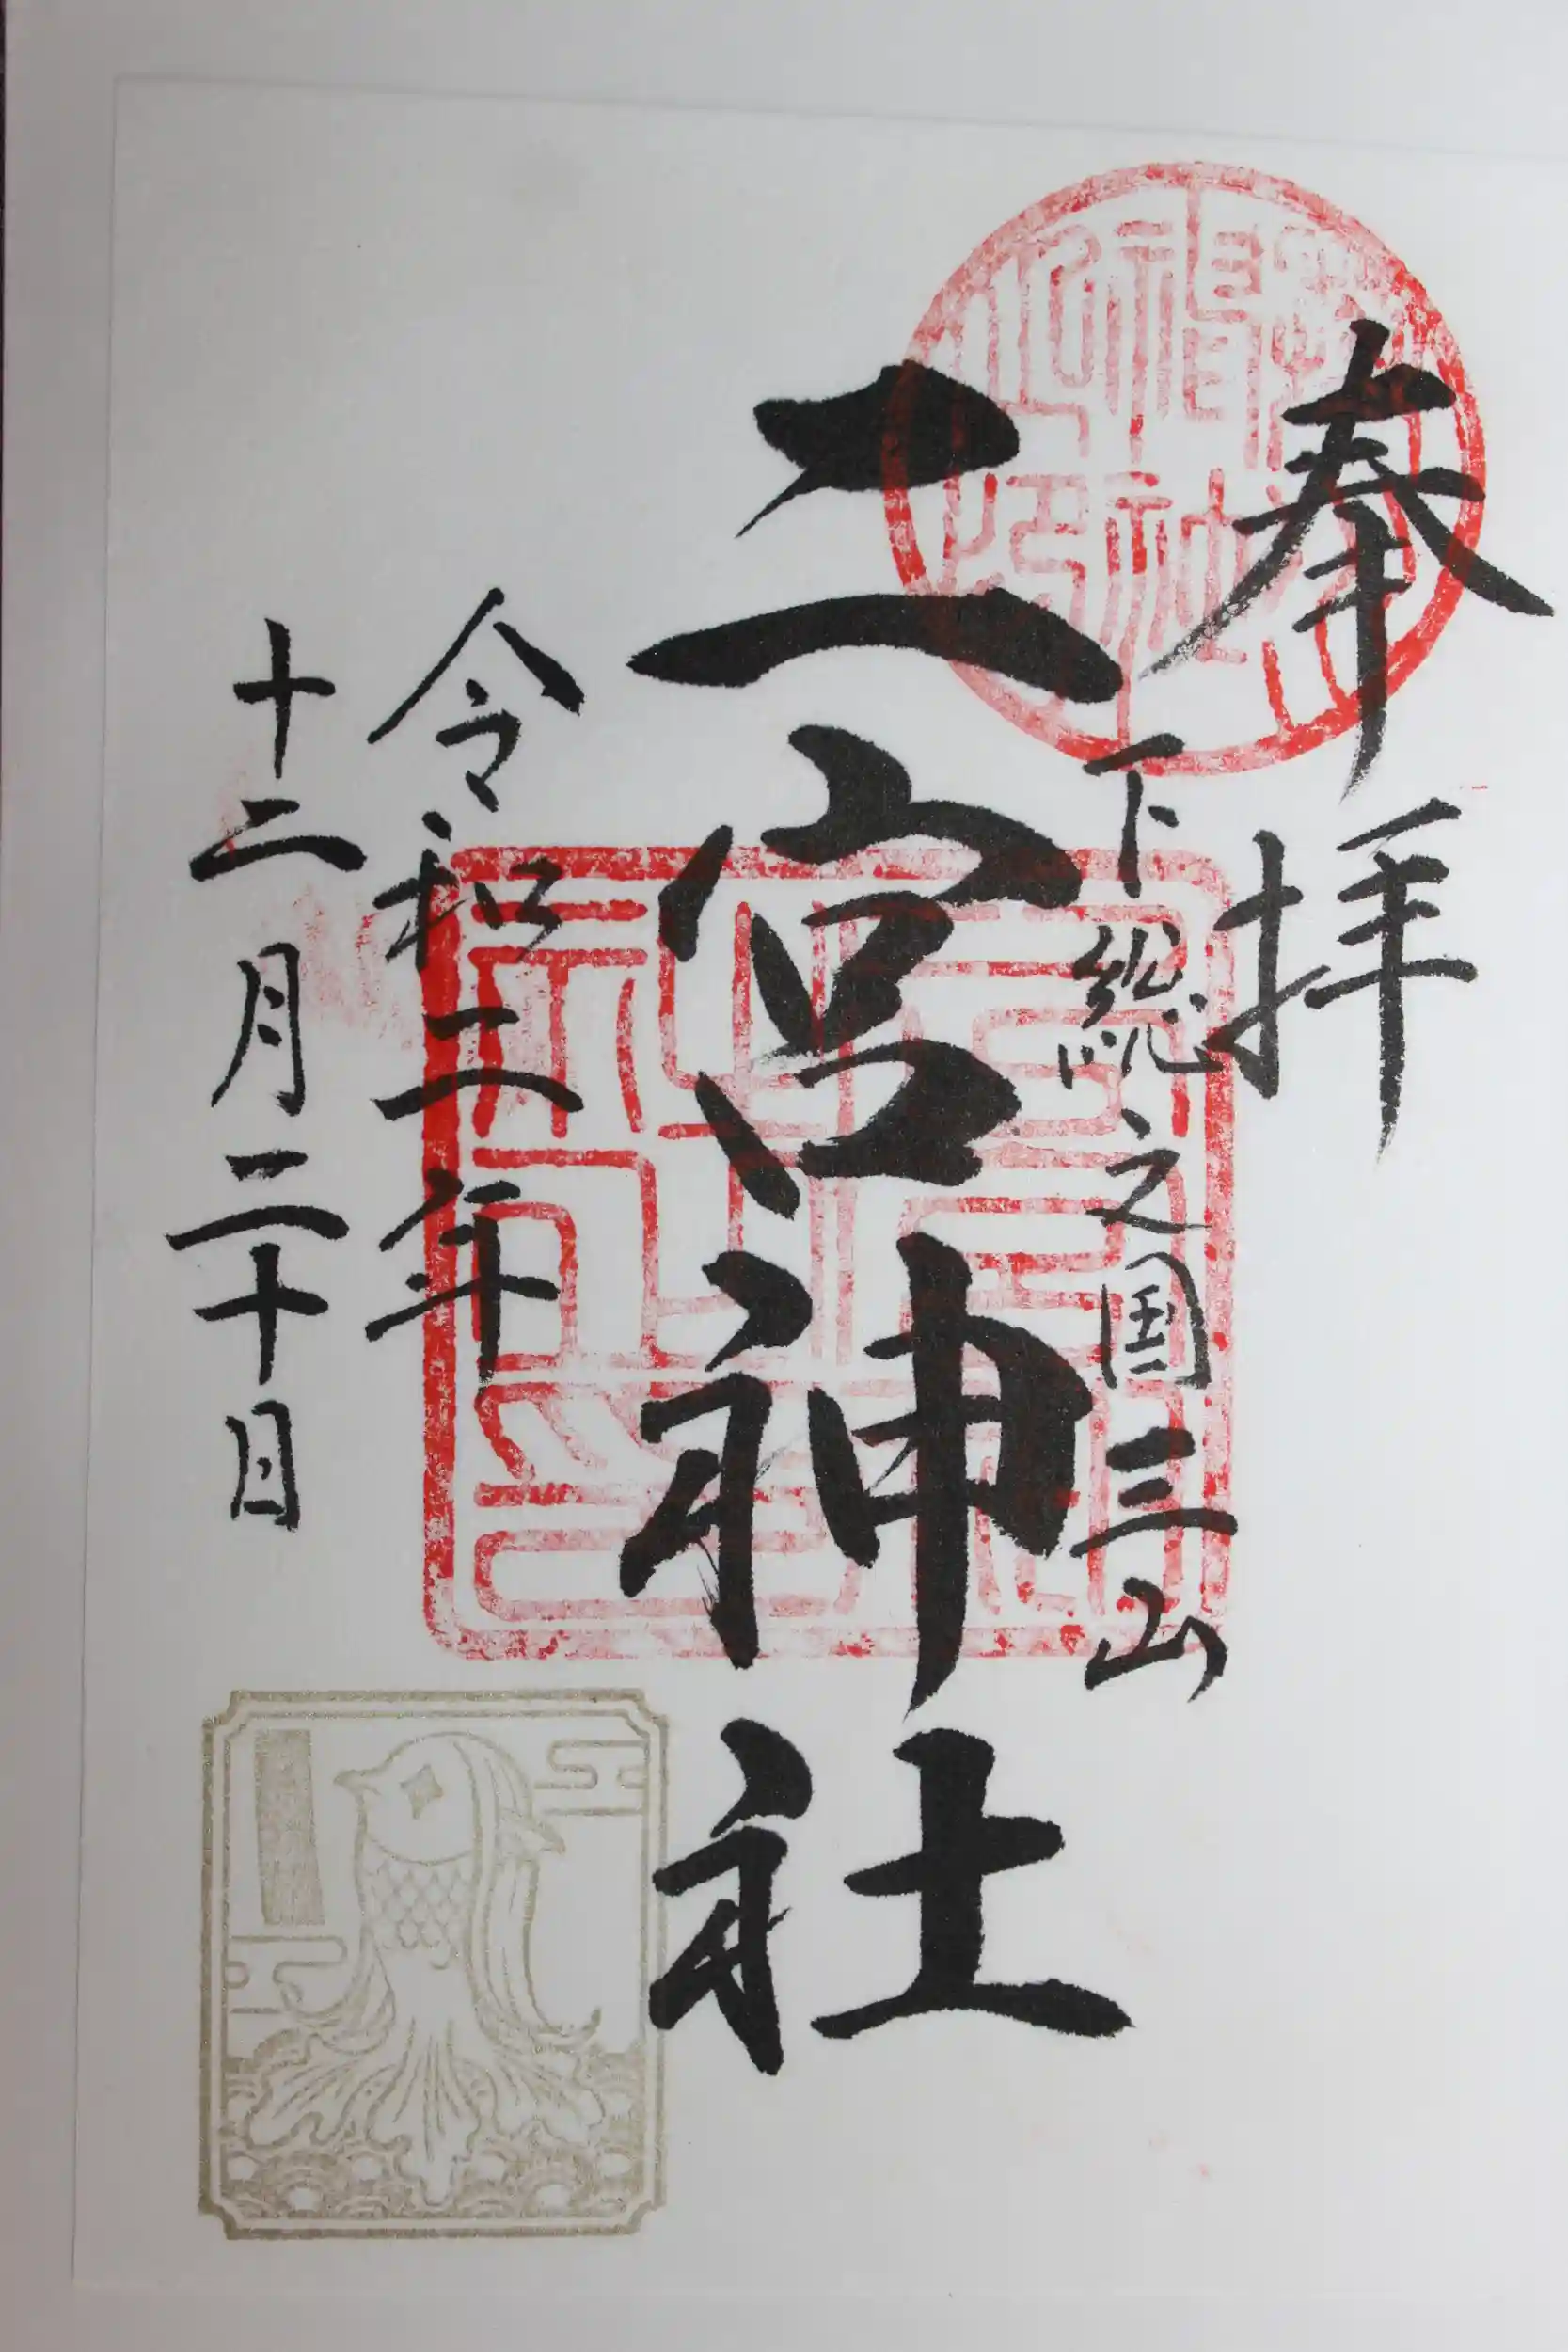 奉拝
下総之国三山
二宮神社
令和二年
十二月二十日